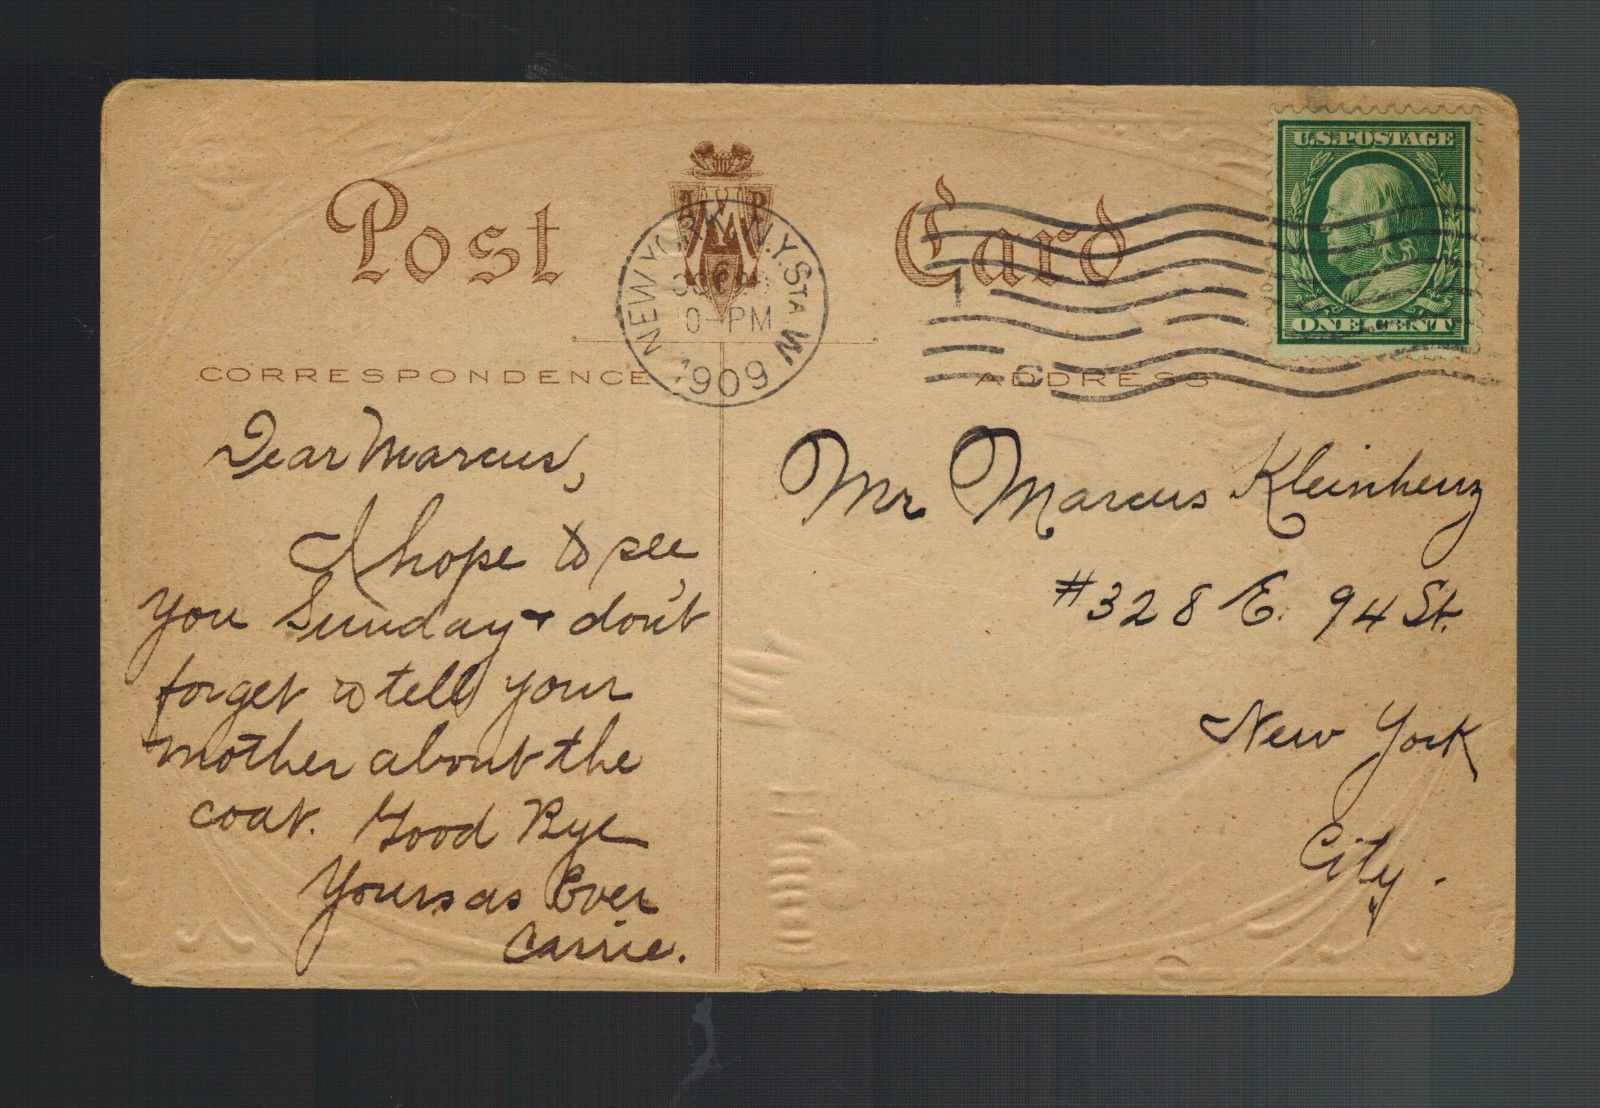 Post Card
U.S. POSTAGE
ONE CENT
NEW YORK, N.Y. STA W
0-PM
1909
CORRESPONDENCE
ADDRESS
Dear Marcus,
I hope to see
you Sunday & don't
forget to tell your
mother about the
coat. Good Bye
Yours as Ever
Carrie.
Mr Marcus Kleinhenz
#328 E. 94 St.
New York
City.